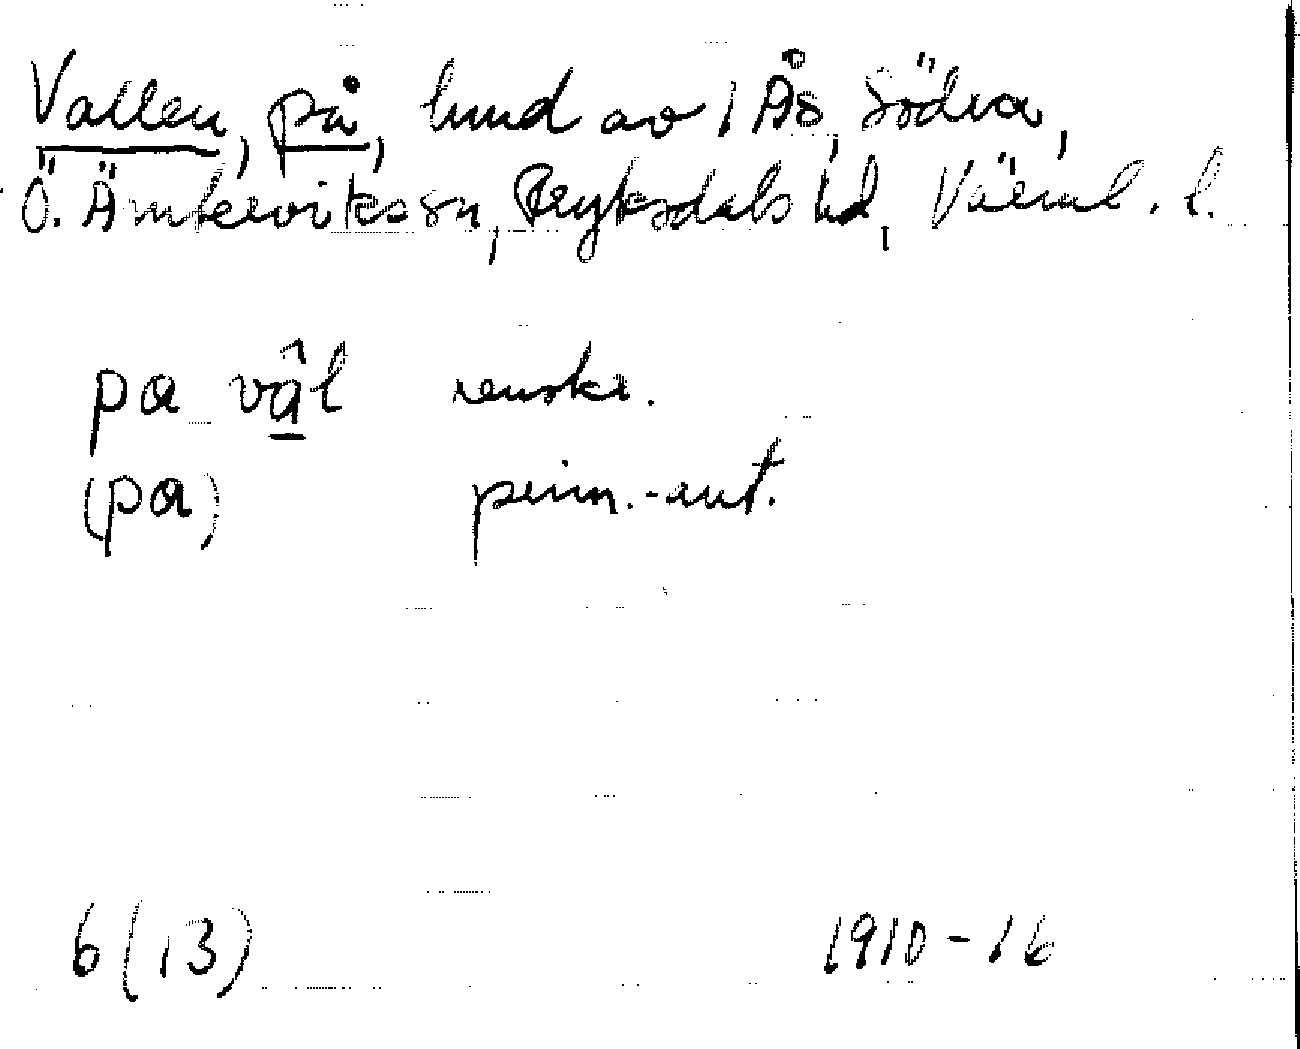 Vallen, på, hmd av 1 Ås, Södra,
Ö. Ämterviks sn, Fryksdals hd, Värml. l.
pa väl renskr.
(pa) prim.-ant.
6 (13) 1910-16